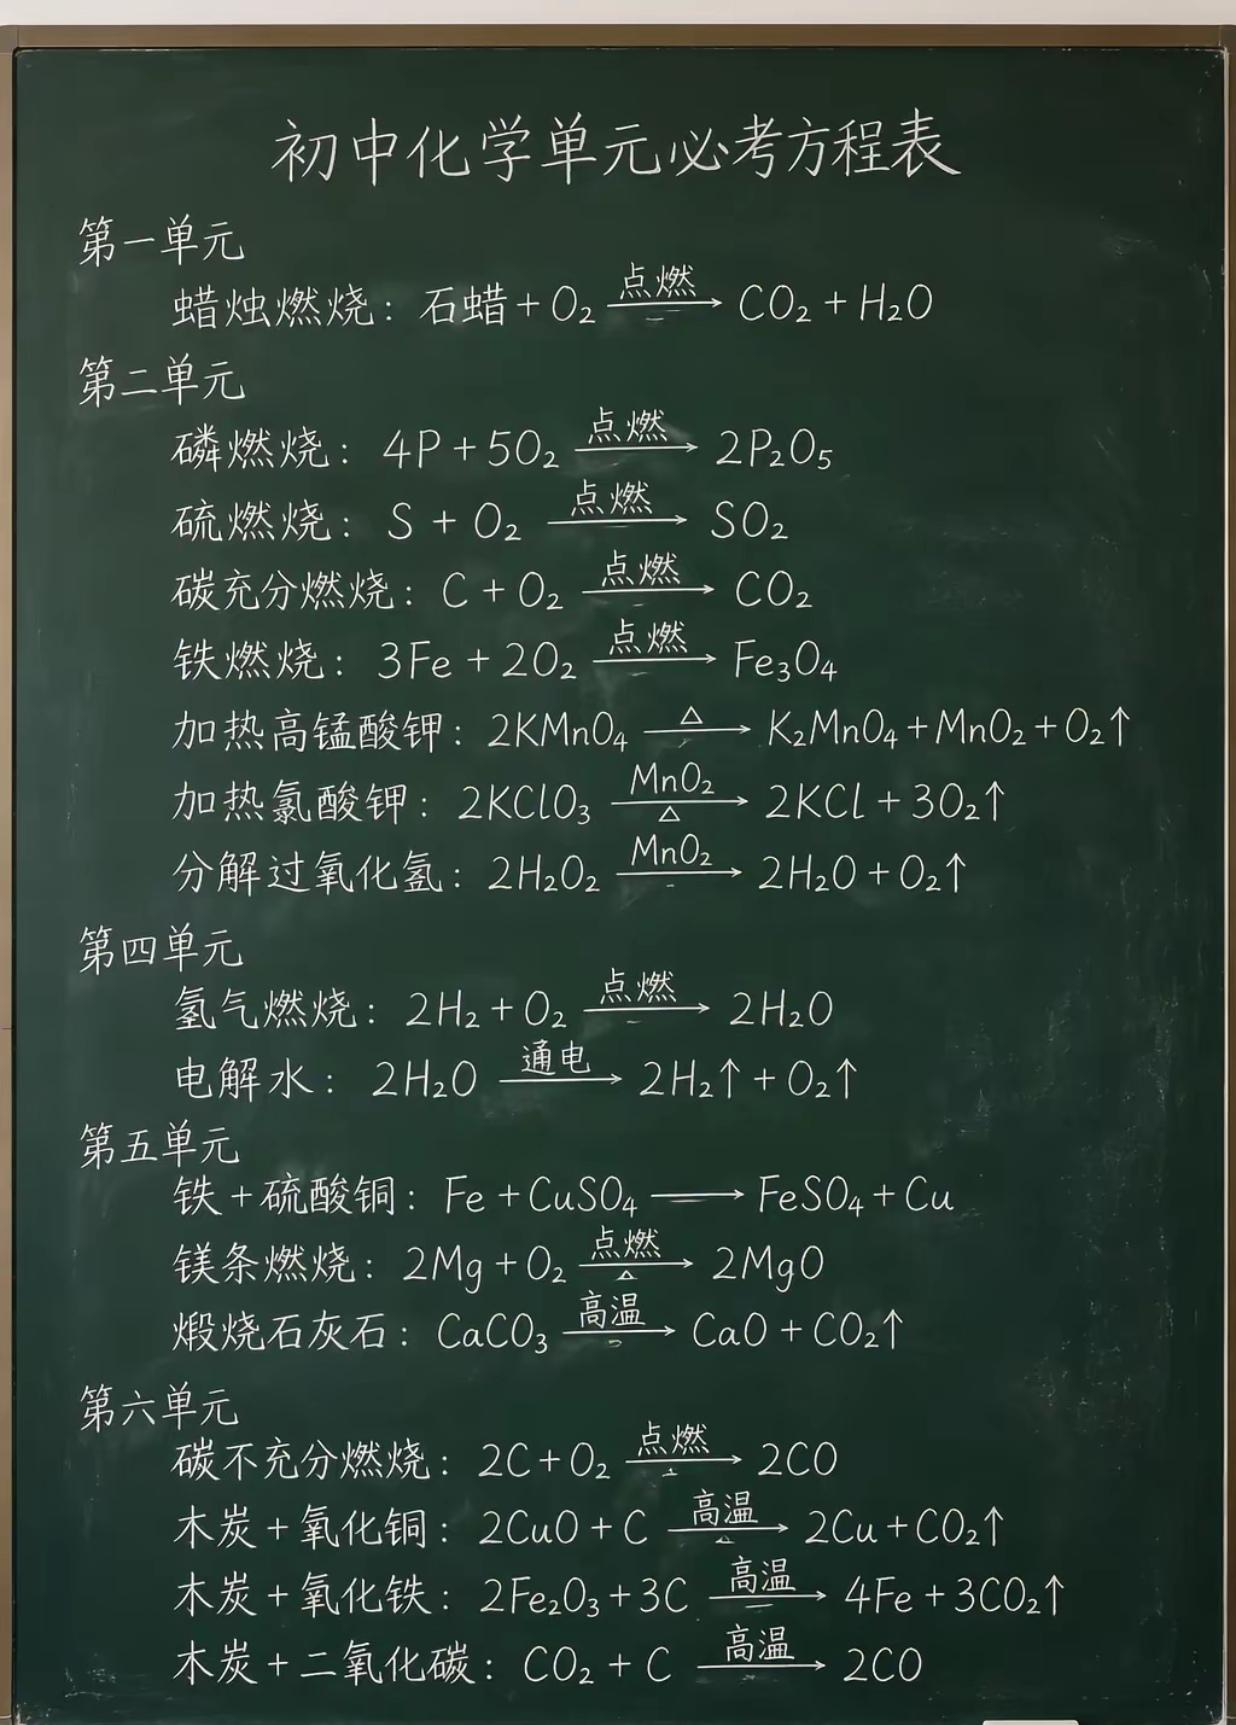 初中化学单元必考方程表
第一单元
蜡烛燃烧：石蜡+O₂ —点燃→ CO₂+H₂O
第二单元
磷燃烧：4P+5O₂ —点燃→ 2P₂O₅
硫燃烧：S+O₂ —点燃→ SO₂
碳充分燃烧：C+O₂ —点燃→ CO₂
铁燃烧：3Fe+2O₂ —点燃→ Fe₃O₄
加热高锰酸钾：2KMnO₄ —△→ K₂MnO₄+MnO₂+O₂↑
加热氯酸钾：2KClO₃ —MnO₂/△→ 2KCl+3O₂↑
分解过氧化氢：2H₂O₂ —MnO₂→ 2H₂O+O₂↑
第四单元
氢气燃烧：2H₂+O₂ —点燃→ 2H₂O
电解水：2H₂O —通电→ 2H₂↑+O₂↑
第五单元
铁+硫酸铜：Fe+CuSO₄ —→ FeSO₄+Cu
镁条燃烧：2Mg+O₂ —点燃→ 2MgO
煅烧石灰石：CaCO₃ —高温→ CaO+CO₂↑
第六单元
碳不充分燃烧：2C+O₂ —点燃→ 2CO
木炭+氧化铜：2CuO+C —高温→ 2Cu+CO₂↑
木炭+氧化铁：2Fe₂O₃+3C —高温→ 4Fe+3CO₂↑
木炭+二氧化碳：CO₂+C —高温→ 2CO